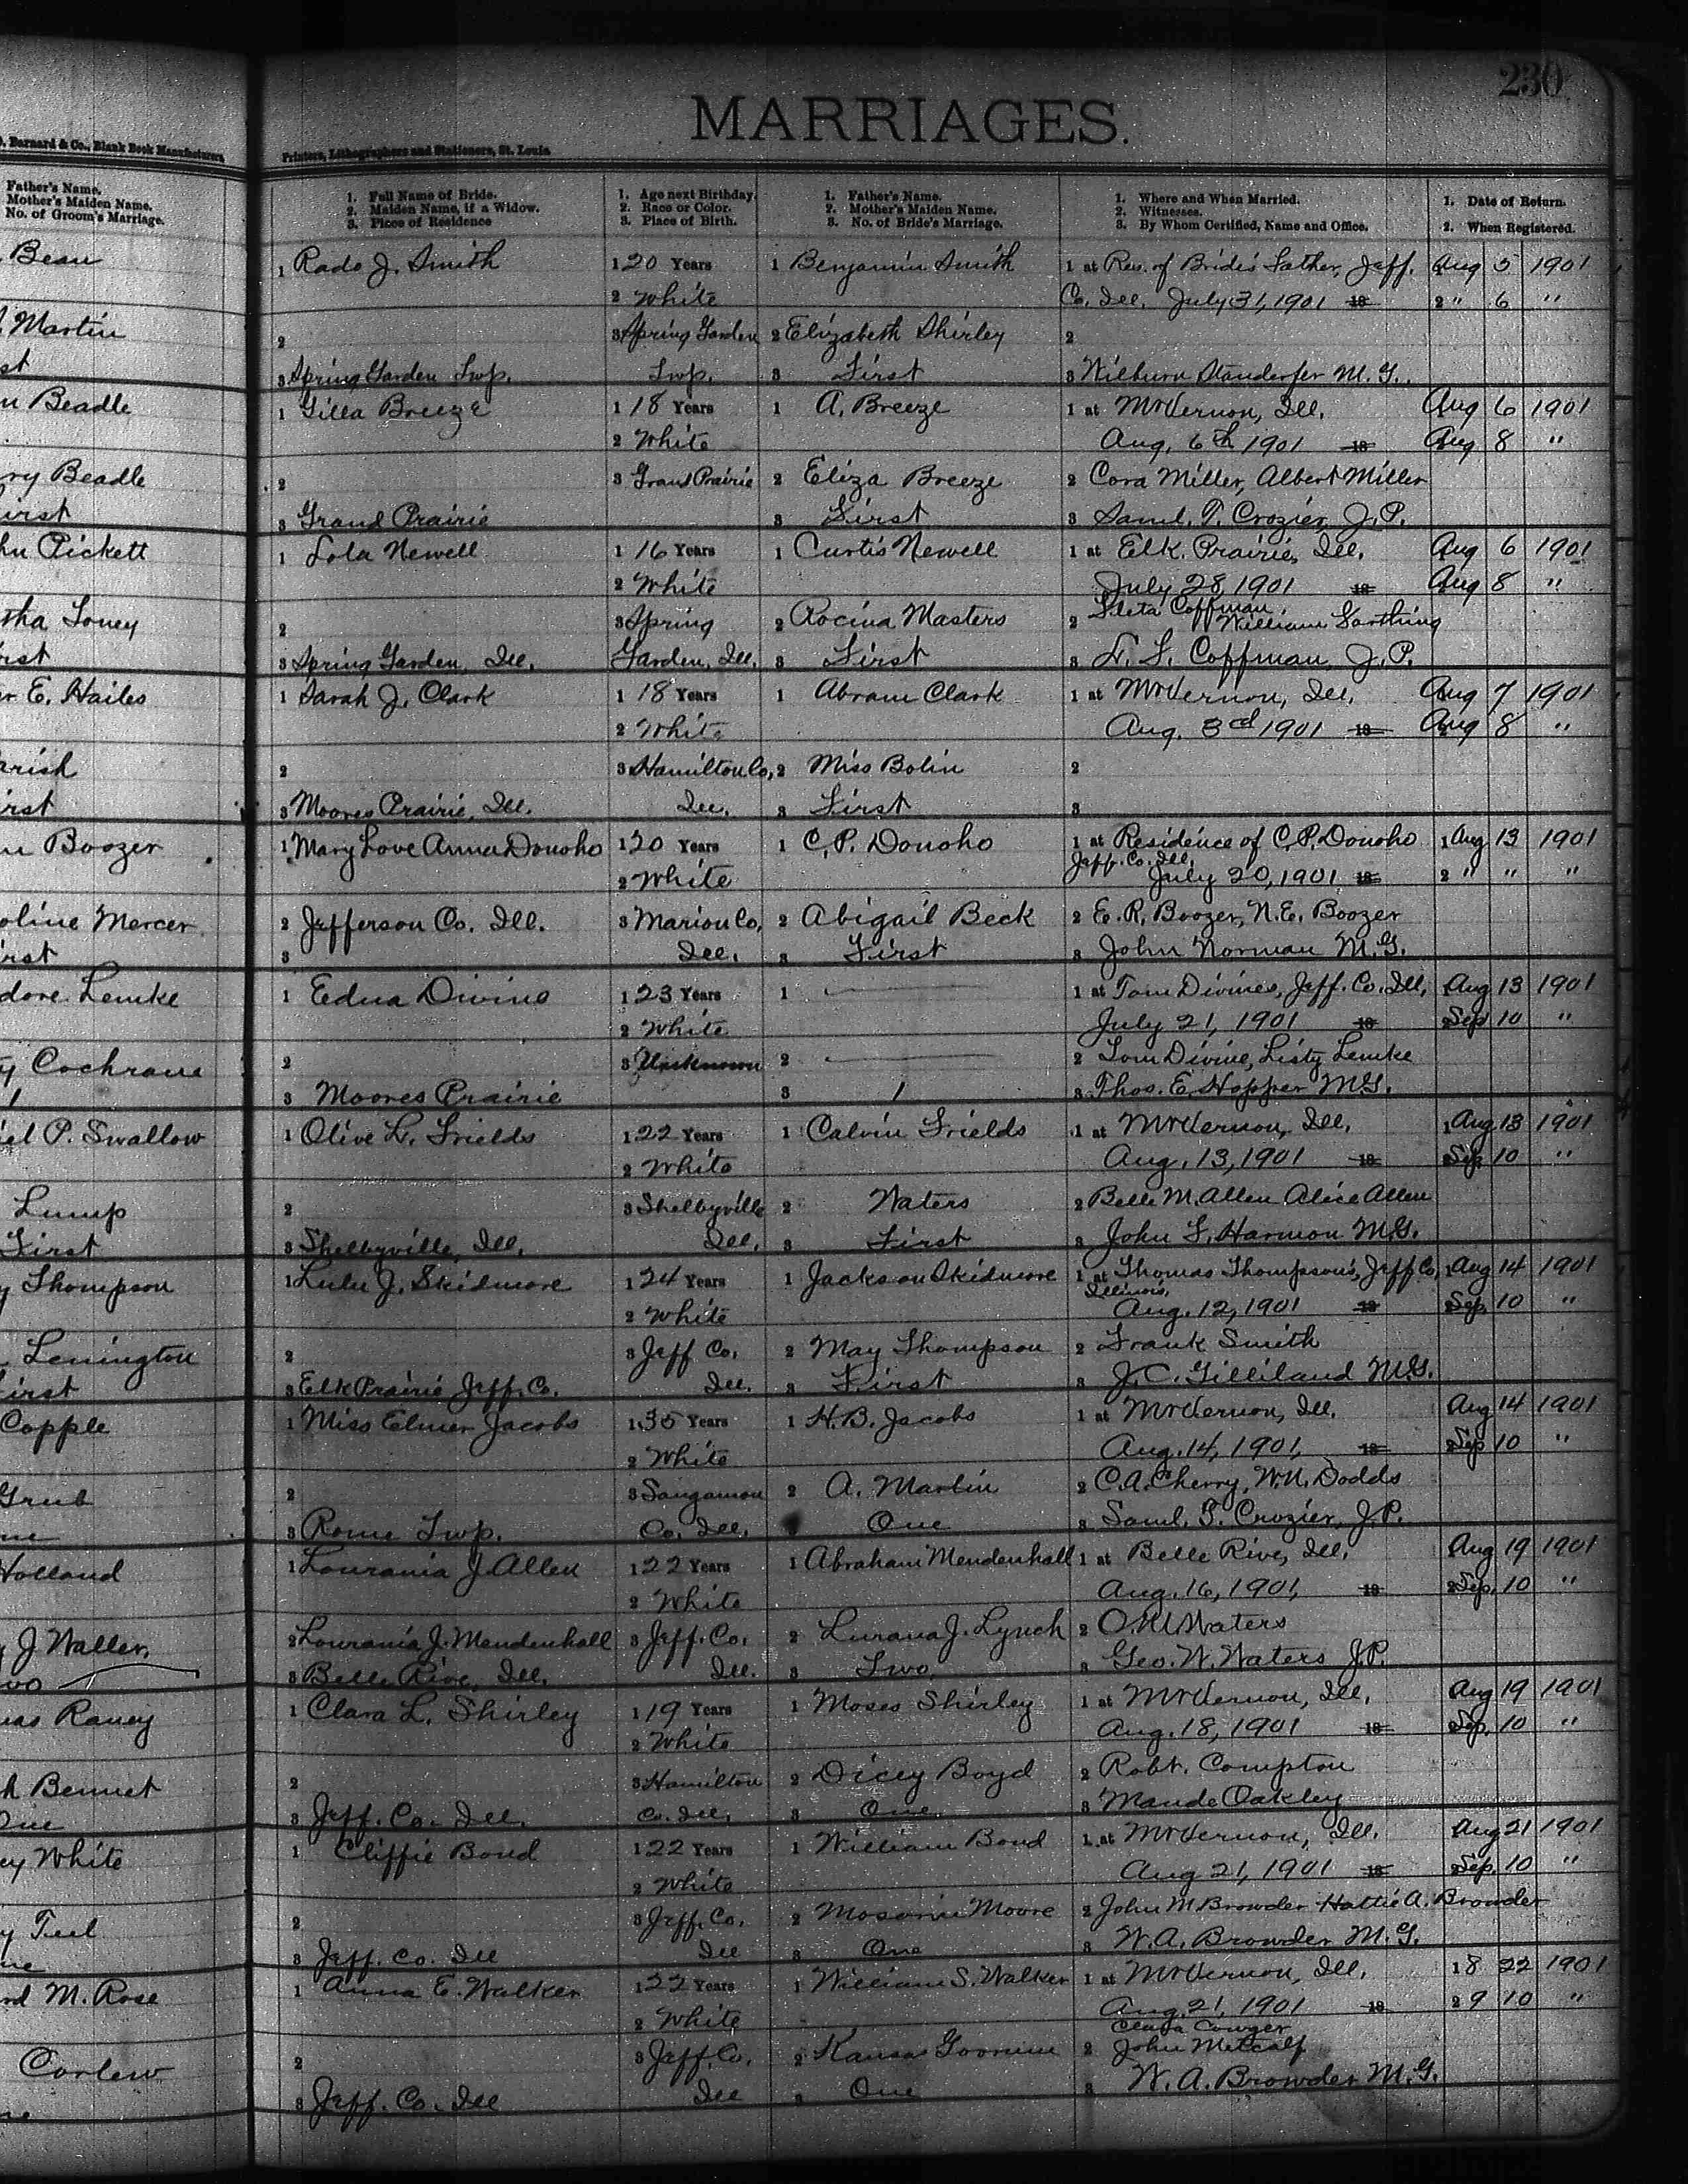 230
MARRIAGES.
D. Barnard & Co., Blank Book Manufacturers, Printers, Lithographers and Stationers, St. Louis
Father's Name.
Mother's Maiden Name.
No. of Groom's Marriage.
1. Full Name of Bride.
2. Maiden Name, if a Widow.
3. Place of Residence
1. Age next Birthday.
2. Race or Color.
3. Place of Birth.
1. Father's Name.
2. Mother's Maiden Name.
3. No. of Bride's Marriage.
1. Where and When Married.
2. Witnesses.
3. By Whom Certified, Name and Office.
1. Date of Return.
2. When Registered.
Bean 1 Rado J. Smith 1 20 Years 1 Benjamin Smith 1 at Res. of Bride's Father, Jeff. Aug 5 1901
2 White Co. Ill. July 31, 1901 18 2 " 6 "
Martin 2 3 Spring Garden 2 Elizabeth Shirley 2
st 3 Spring Garden Twp. Twp. 3 First 3 Wilburn Standerfer M.G.
Beadle 1 Gilla Breeze 1 18 Years 1 A. Breeze 1 at Mt Vernon, Ill. Aug 6 1901
2 White Aug. 6th 1901 18 Aug 8 "
ry Beadle 2 3 Grand Prairie 2 Eliza Breeze 2 Cora Miller, Albert Miller
irst 3 Grand Prairie 3 First 3 Saml. T. Crozier, J.P.
hn Pickett 1 Lola Newell 1 16 Years 1 Curtis Newell 1 at Elk Prairie, Ill. Aug 6 1901
2 White July 28, 1901 18 Aug 8 "
tha Toney 2 3 Spring 2 Rocina Masters 2 Coffman, William
rst 3 Spring Garden, Ill. Garden, Ill. 3 First 3 Coffman, J.P.
r E. Hailes 1 Sarah J. Clark 1 18 Years 1 Abram Clark 1 at Mt Vernon, Ill. Aug 7 1901
2 White Aug. 3rd 1901 18 Aug 8 "
arish 2 3 Hamilton Co, 2 Miss Bolin 2
irst 3 Moores Prairie, Ill. Ill. 3 First 3
n Boozer 1 Mary Love Anna Donoho 1 20 Years 1 C. P. Donoho 1 at Residence of C. P. Donoho 1 Aug 13 1901
2 White Jeff. Co. Ill. July 20, 1901 18 2 " " "
oline Mercer 2 Jefferson Co. Ill. 3 Marion Co, 2 Abigail Beck 2 E. R. Boozer, N. E. Boozer
irst 3 Ill. 3 First 3 John Norman M.G.
dore Lemke 1 Edna Divine 1 23 Years 1 — 1 at Tom Divines, Jeff. Co. Ill, 1 Aug 13 1901
2 White July 21, 1901 18 2 Sep 10 "
y Cochrane 2 3 Unknown 2 — 2 Tom Divine, Listy Lemke
1 3 Moores Prairie 3 1 3 Thos. E. Hopper M.G.
iel P. Swallow 1 Olive L. Frields 1 22 Years 1 Calvin Frields 1 at Mt Vernon, Ill. 1 Aug 13 1901
2 White Aug. 13, 1901 18 2 Sep 10 "
Lump 2 3 Shelbyville 2 Waters 2 Belle M. Allen Alice Allen
First 3 Shelbyville, Ill. Ill. 3 First 3 John F. Harmon M.G.
y Thompson 1 Lulu J. Skidmore 1 24 Years 1 Jackson Skidmore 1 at Thomas Thompson's, Jeff Co, 1 Aug 14 1901
2 White Illinois, Aug. 12, 1901 18 2 Sep. 10 "
Lenington 2 3 Jeff Co. 2 May Thompson 2 Frank Smith
First 3 Elk Prairie Jeff. Co. Ill. 3 First 3 J. C. Gilliland M.G.
Copple 1 Miss Elmer Jacobs 1 35 Years 1 H. B. Jacobs 1 at Mt Vernon, Ill. Aug 14 1901
2 White Aug. 14, 1901, 18 2 Sep 10 "
Grub 2 3 Sangamon 2 A. Martin 2 C. A. Cherry, W. N. Dodds
ne 3 Rome Twp. Co. Ill. One 3 Saml. T. Crozier, J.P.
Holland 1 Lourania J. Allen 1 22 Years 1 Abraham Mendenhall 1 at Belle Rive, Ill. Aug 19 1901
2 White Aug. 16, 1901, 18 2 Sep. 10 "
J Waller, 2 Lourania J. Mendenhall 3 Jeff. Co. 2 Lurana J. Lynch 2 Waters
wo 3 Belle Rive, Ill. Ill. 3 Two. 3 Geo. W. Waters J.P.
mas Raney 1 Clara L. Shirley 1 19 Years 1 Moses Shirley 1 at Mt Vernon, Ill. Aug 19 1901
2 White Aug. 18, 1901 18 2 Sep. 10 "
h Bennet 2 3 Hamilton 2 Dicey Boyd 2 Robt. Compton
One 3 Jeff. Co. Ill. Co. Ill. 3 One. 3 Maude Oakley
ey White 1 Cliffie Bond 1 22 Years 1 William Bond 1 at Mt Vernon, Ill. Aug 21 1901
2 White Aug 21, 1901 18 2 Sep. 10 "
y Teel 2 3 Jeff. Co. 2 Moore 2 John M Browder Hattie A. Browder
ne 3 Jeff. Co. Ill Ill 3 One 3 W. A. Browder M.G.
rd M. Rose 1 Anna E. Walker 1 22 Years 1 William S. Walker 1 at Mt Vernon, Ill. 1 8 22 1901
2 White Aug. 21, 1901 18 2 9 10 "
Clara Cowger
Corlew 2 3 Jeff. Co. 2 Kansas 2 John Metcalf
ne 3 Jeff. Co. Ill Ill 3 One 3 W. A. Browder M.G.